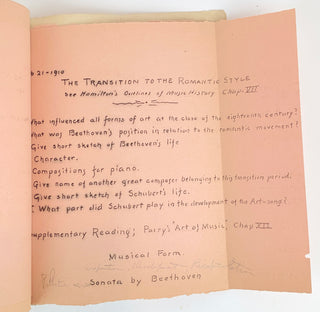 b 21-1910
The Transition to the Romantic Style
See Hamilton's Outlines of Music History Chap. VII
What influenced all forms of art at the close of the eighteenth century?
What was Beethoven's position in relation to the romantic movement?
Give short sketch of Beethoven's life
Character.
Compositions for piano.
Give name of another great composer belonging to this transition period.
Give short sketch of Schubert's life.
What part did Schubert play in the development of the Art-song?
Supplementary Reading; Parry's "Art of Music" Chap XII
Musical Form.
Sonata by Beethoven